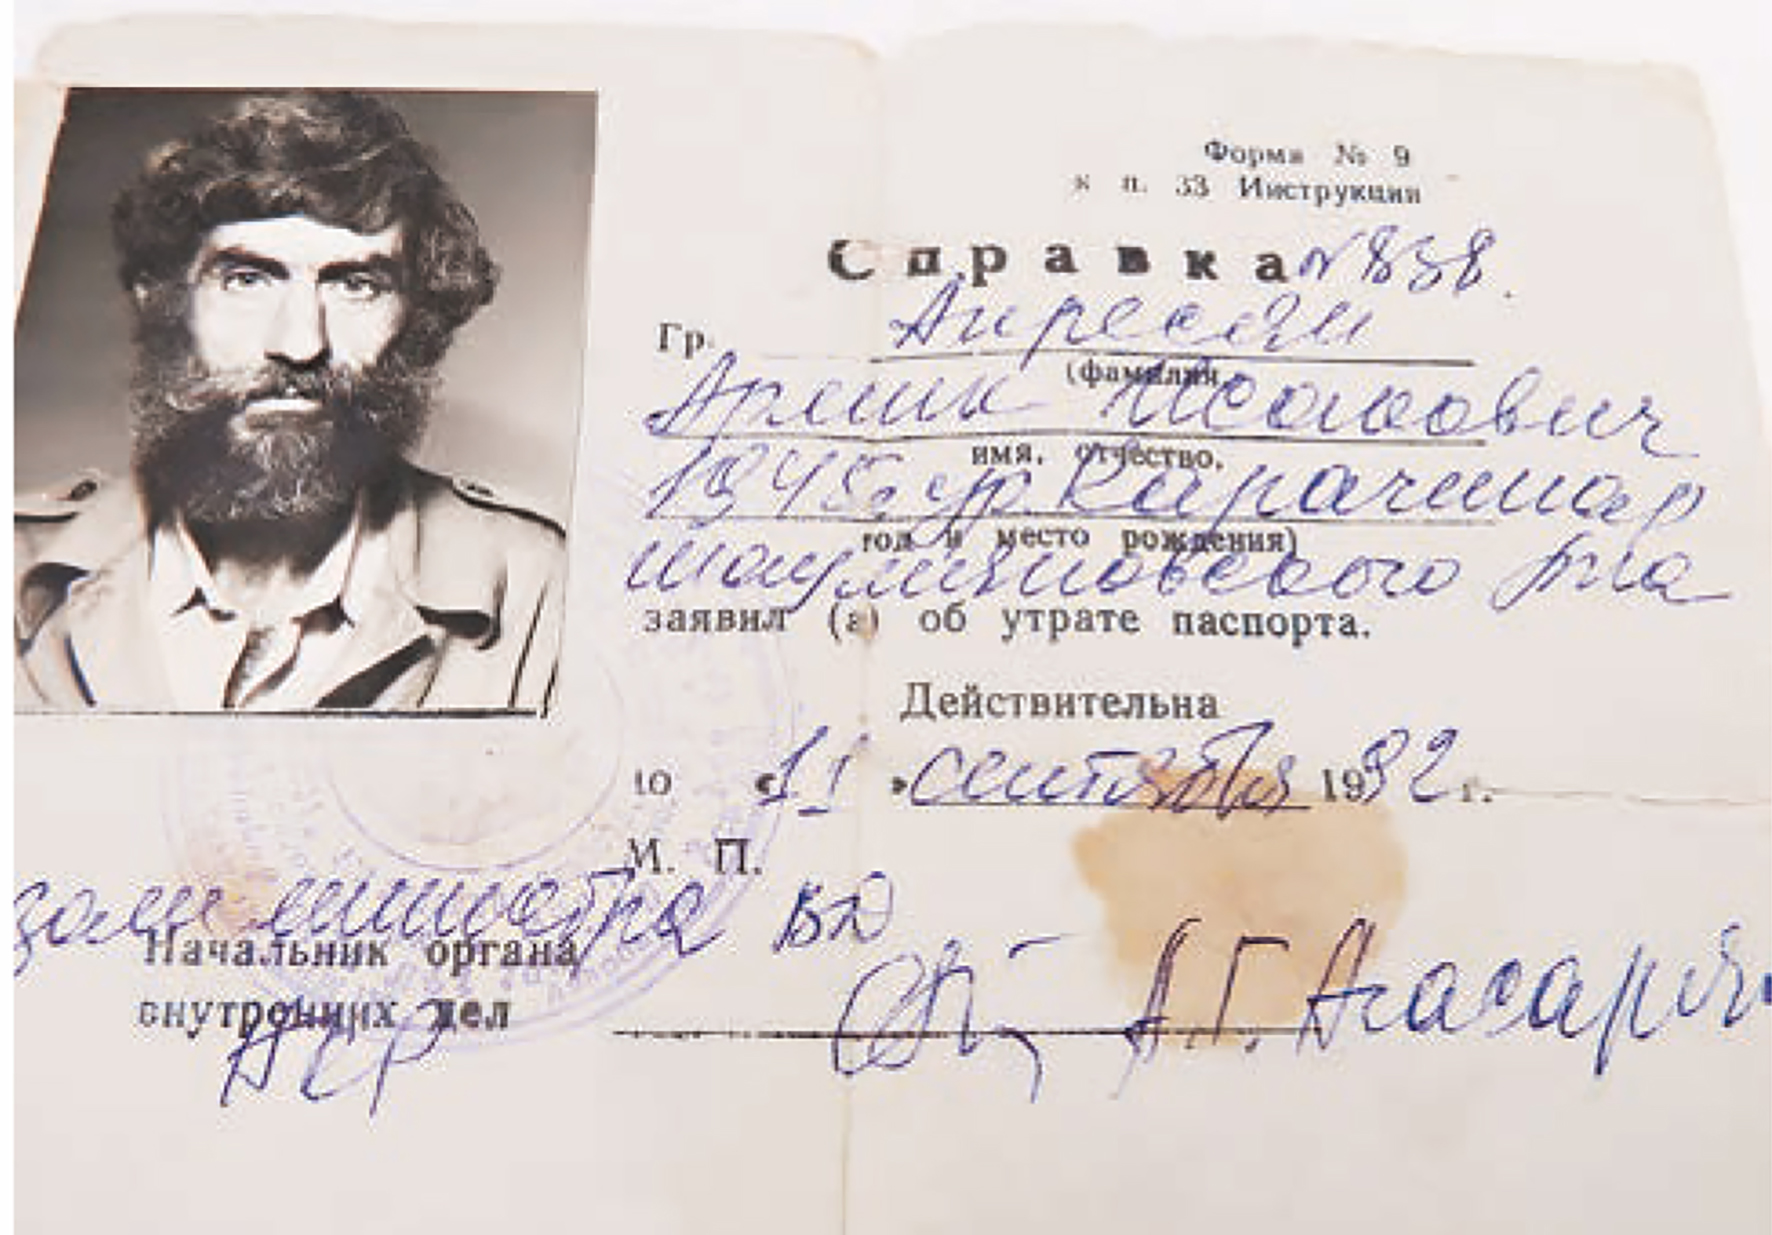 Форма № 9
к п. 33 Инструкции
Справка № 838.
Гр. Айресян
(фамилия,
Армик Исакович
имя, отчество,
1945г. ур. Карачинар
год и место рождения)
Шаумяновского р-на
заявил (а) об утрате паспорта.
Действительна
до «11» сентября 1992 г.
М. П.
зам. министра ВД
Начальник органа
внутренних дел
А.Г. Агасарян